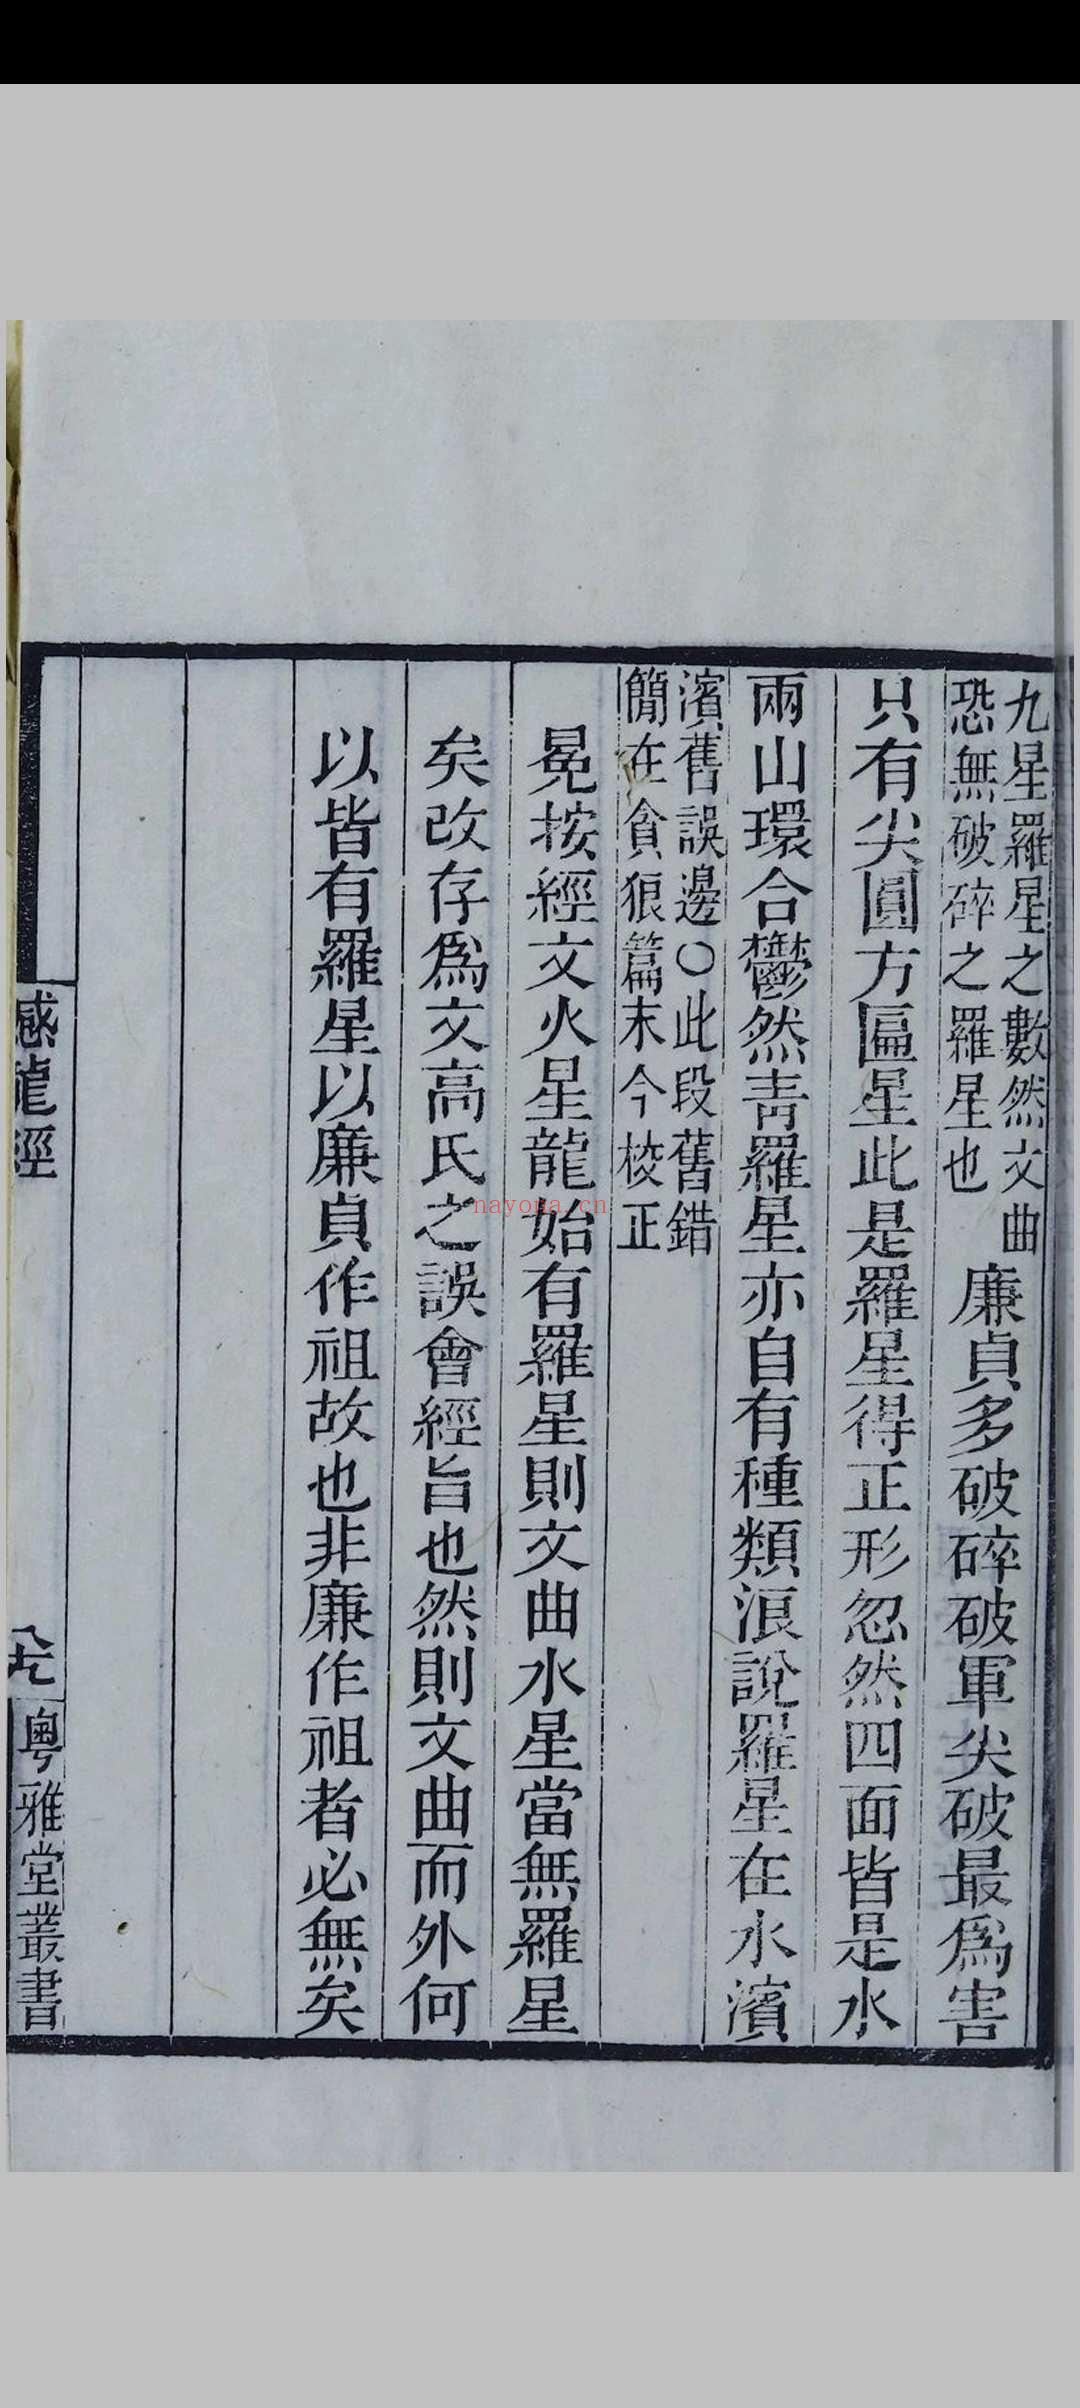 九星羅星之數然文曲
恐無破碎之羅星也
廉貞多破碎破軍尖破最爲害
只有尖圓方匾星此是羅星得正形忽然四面皆是水
兩山環合鬱然青羅星亦自有種類浪說羅星在水濱
濱舊誤邊○此段舊錯
簡在貪狼篇末今校正
冕按經文火星龍始有羅星則文曲水星當無羅星
矣改存爲文高氏之誤會經旨也然則文曲而外何
以皆有羅星以廉貞作祖故也非廉作祖者必無矣
龍經
粵雅堂叢書
nayona.cn